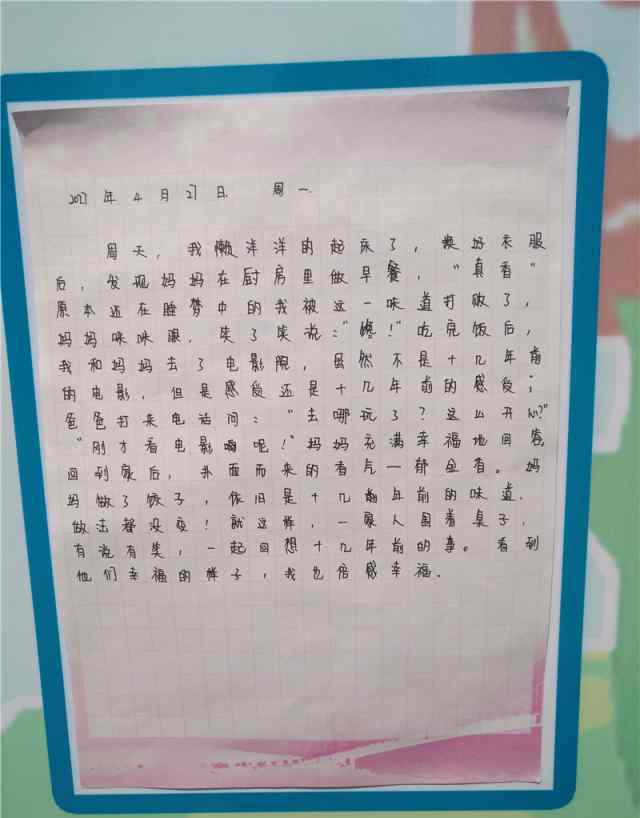 2027年4月27日 周一.
周天，我懒洋洋的起床了，换好衣服
后，发现妈妈在厨房里做早餐，“真香”
原本还在睡梦中的我被这一味道打败了，
妈妈咪咪眼，笑了笑说：“馋！”吃完饭后，
我和妈妈去了电影院，虽然不是十几年前
的电影，但是感受还是十几年前的感受；
爸爸打来电话问：“去哪玩了？这么开心？”
“刚才看电影啊呢！”妈妈充满幸福地回答
回到家后，扑面而来的香气一郁全香。妈
妈做了饺子，依旧是十几年前的味道.
做法都没变！就这样，一家人围着桌子，
有说有笑，一起回想十几年前的事。看到
他们幸福的样子，我也倍感幸福.